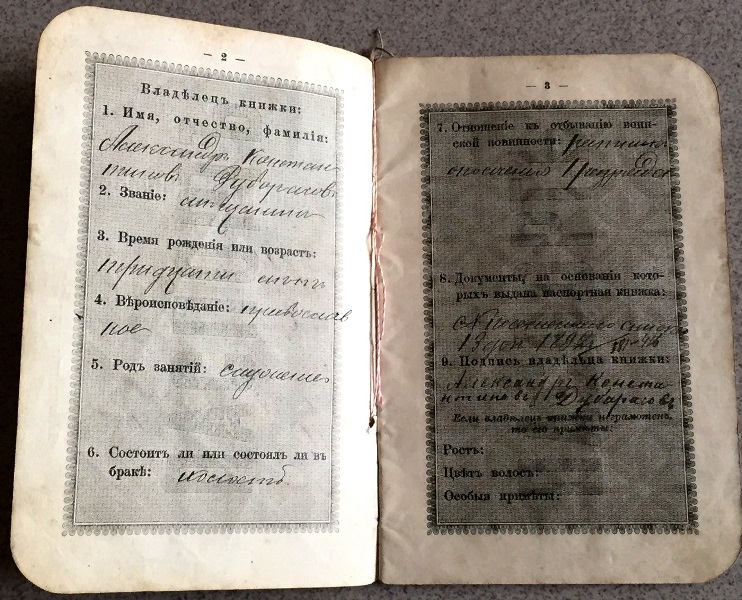 — 2 —
Владѣлецъ книжки:
1. Имя, отчество, фамилія:
Александръ Констан
тиновъ Дубараговъ
2. Званіе:
3. Время рожденія или возрастъ:
тридцати лѣтъ
4. Вѣроисповѣданіе: православ
ное
5. Родъ занятій: служеніе
6. Состоитъ ли или состоялъ ли въ
бракѣ: холостъ.
— 3 —
7. Отношеніе къ отбыванію воин-
ской повинности: ратникъ
ополченія 1 разряда
8. Документы, на основаніи кото-
рыхъ выдана паспортная книжка:
9. Подпись владѣльца книжки:
Александръ Конста
нтиновъ Дубараговъ
Если владѣлецъ книжки неграмотенъ,
то его примѣты:
Ростъ:
Цвѣтъ волосъ:
Особыя примѣты: